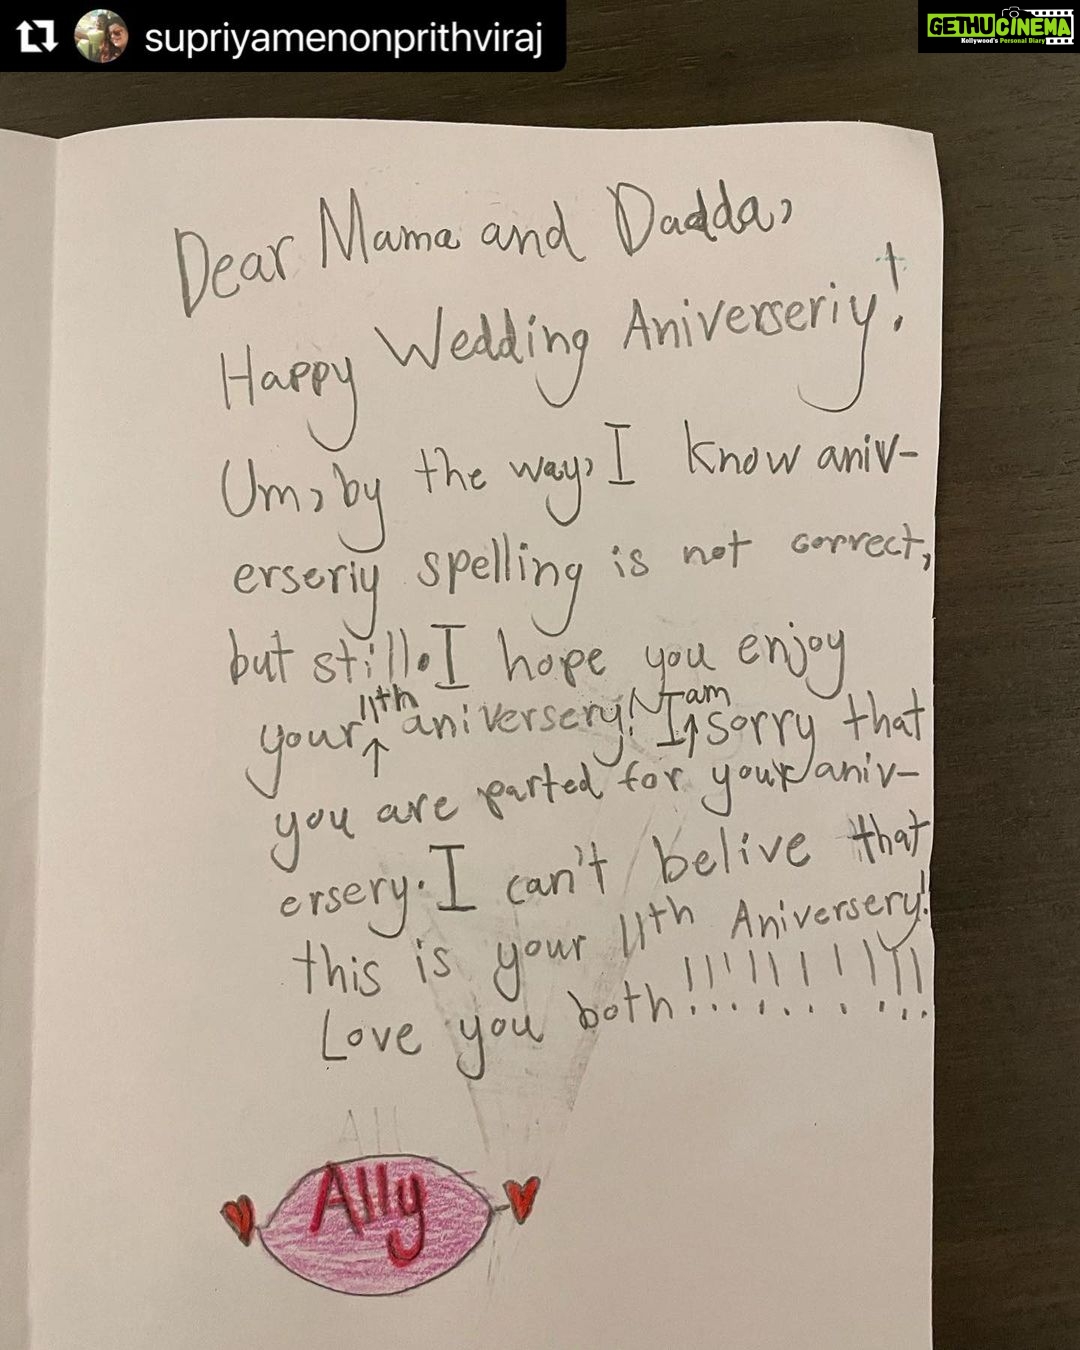 supriyamenonprithviraj
GETHUCINEMA
Kollywood's Personal Diary
Dear Mama and Dadda,
Happy Wedding Aniverseriy!
Um, by the way, I know aniv-
erseriy spelling is not correct,
but still. I hope you enjoy
your 11th aniversery! I am sorry that
you are parted for your aniv-
ersery. I can't belive that
this is your 11th Aniversery!
Love you both!!!!!!!!!!
All
Ally